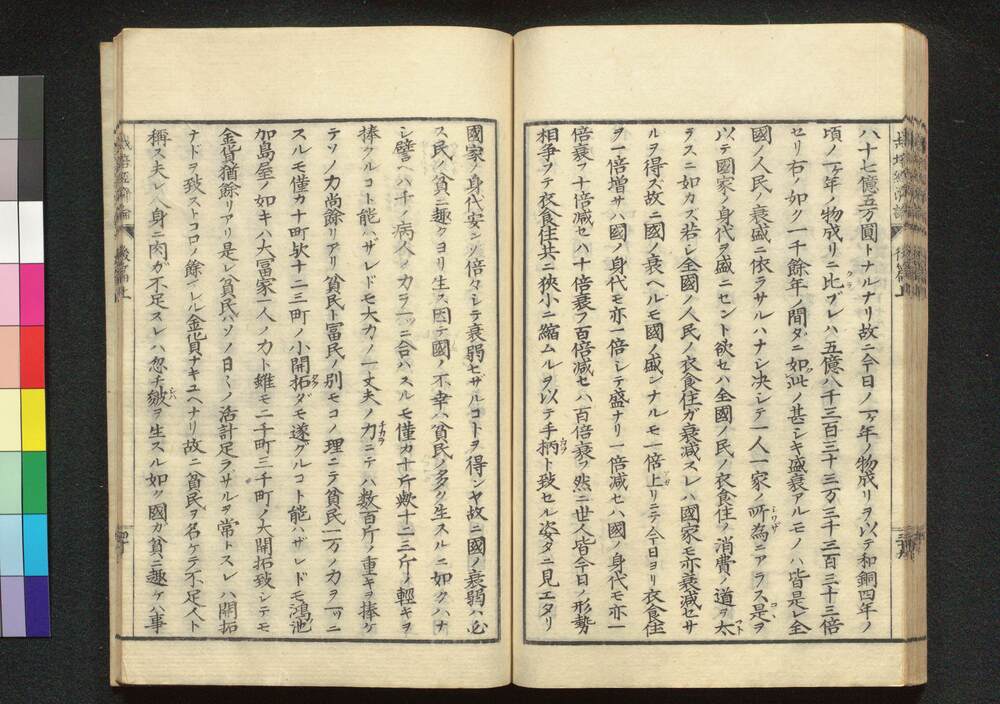 八十七億五万圓トナルナリ故ニ今日ノ一ケ年ノ物成リヲ以テ和銅四年ノ
頃ノ一ケ年ノ物成リニ比ブレハ五億八千三百三十三万三千三百三十三倍
セリ右ノ如ク一千餘年ノ間ダニ如此ノ甚シキ盛衰アルモノハ皆是レ全
國ノ人民ノ衰盛ニ依ラサルハナシ决シテ一人一家ノ所為ニアラス是ヲ
以テ國家ノ身代ヲ盛ニセント欲セハ全國ノ民ノ衣食住ノ消費ノ道ヲ太
ラスニ如カズ若シ全國ノ人民ノ衣食住ガ衰減スレハ國家モ亦衰減セサ
ルヲ得ズ故ニ國ノ衰ヘルモ國ノ盛ンナルモ一倍上リニテ今日ヨリ衣食住
ヲ一倍增サハ國ノ身代モ亦一倍シテ盛ナリ一倍減セハ國ノ身代モ亦一
倍衰フ十倍減セハ十倍衰フ百倍減セハ百倍衰フ然ニ世人皆今日ノ形勢
相爭フテ衣食住共ニ狹小ニ縮ムルヲ以テ手柄ト致セル姿タニ見エタリ
國家ノ身代安ンソ倍々シテ衰弱セザルコトヲ得ンヤ故ニ國ノ衰弱ハ必
ス民ノ貧ニ趣クヨリ生ス因テ國ノ不幸ハ貧民ノ多ク生スルニ如クハナ
シ譬ヘハ千ノ病人ノカラ一ツニ合ハスルモ僅カ十斤歟十二三斤ノ輕キヲ
捧クルコト能ハザレドモ大力ノ一丈夫ノ力ニテハ数百斤ノ重キヲ捧ケ
テソノ力尚餘リアリ貧民ト富民ノ別モコノ理ニテ貧民一万ノ力ヲ一ツニ
スルモ僅カナ町歟十二三町ノ小開拓ダモ遂グルコト能ハザレドモ鴻池
加島屋ノ如キハ大冨家一人ノ力ト雖モ二千町三千町ノ大開拓致シテモ
金貨猶餘リアリ是レ貧民ハソノ日〻ノ活計足ラサルヲ常トスレハ開拓
ナドヲ致ストコロノ餘マレル金貨ナキユヘナリ故ニ貧民ヲ名ケテ不足人ト
稱ス夫レ人身ニ肉ガ不足スレハ忽チ皺ヲ生スル如ク國ガ貧ニ趣ケハ事